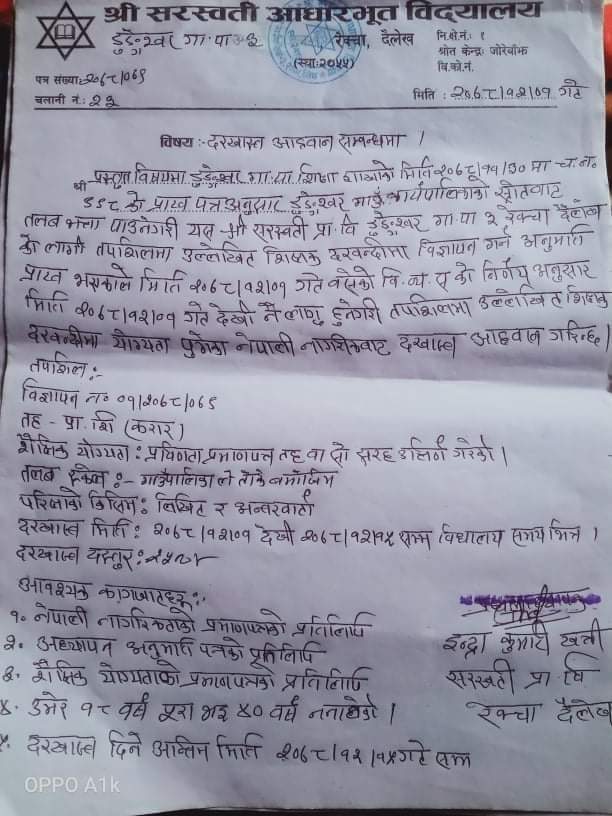 श्री सरस्वती आधारभूत विद्यालय
डुंडुेश्वर गा.पा ३ रेक्चा, दैलेख
नि.क्षे.नं.: १
श्रोत केन्द्र: जोरेवाँझ
वि.को.नं.
(स्था: २०५५)
पत्र संख्या: २०७८/०७९
चलानी नं.: २३
मिति: २०७८/१२/०१ गते
विषय :- दरखास्त आह्वान सम्बन्धमा ।
प्रस्तुत विषयमा डुंडुेश्वर गा.पा शिक्षा शाखाको मिति २०७८/११/३० मा च.नं.
को प्राप्त पत्र अनुसार डुंडुेश्वर गाउँ कार्यपालिकाको स्रोतबाट
तलब भत्ता पाउनेगरी यस श्री सरस्वती प्रा.वि डुंडुेश्वर गा.पा ३ रेक्चा दैलेख
को लागी तपाशिलमा उल्लेखित शिक्षक दरवन्दीमा विज्ञापन गर्न अनुमति
प्राप्त भएकाले मिति २०७८/१२/०१ गते बसेको वि.व्य.स को निर्णय अनुसार
मिति २०७८/१२/०१ गते देखी नै लागु हुनेगरी तपशिलमा उल्लेखित शिक्षक
दरवन्दीमा योग्यता पुगेका नेपाली नागरिकबाट दरखास्त आह्वान गरिन्छ।
तपशिल:-
विज्ञापन नं० ०१/२०७८/०७९
तह - प्रा.शि (करार)
शैक्षिक योग्यता: प्रविणता प्रमाणपत्र तह वा सो सरह उत्तिर्ण गरेको ।
तलब स्केल:- गाउँपालिका ले तोके बमोजिम
परिक्षाको किसिम: लिखित र अन्तरवार्ता
दरखास्त मिति: २०७८/१२/०१ देखी २०७८/१२/१५ सम्म विद्यालय समय भित्र ।
दरखास्त दस्तुर:
आवश्यक कागजातहरू:-
१. नेपाली नागरिकताको प्रमाणपत्रको प्रतिलिपि
२. अध्यापन अनुमति पत्रको प्रतिलिपि
३. शैक्षिक योग्यताको प्रमाणपत्रको प्रतिलिपि
४. उमेर १८ वर्ष पूरा भइ ४० वर्ष ननाघेको ।
५. दरखास्त दिने अन्तिम मिति २०७८/१२/१५ गते सम्म
इन्द्रा कुमारी खत्री
सरस्वती प्रा.वि
रेक्चा दैलेख
OPPO A1k